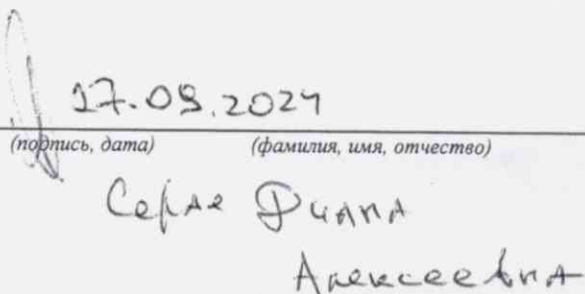 17.09.2024
(подпись, дата) (фамилия, имя, отчество)
Диана
Алексеевна